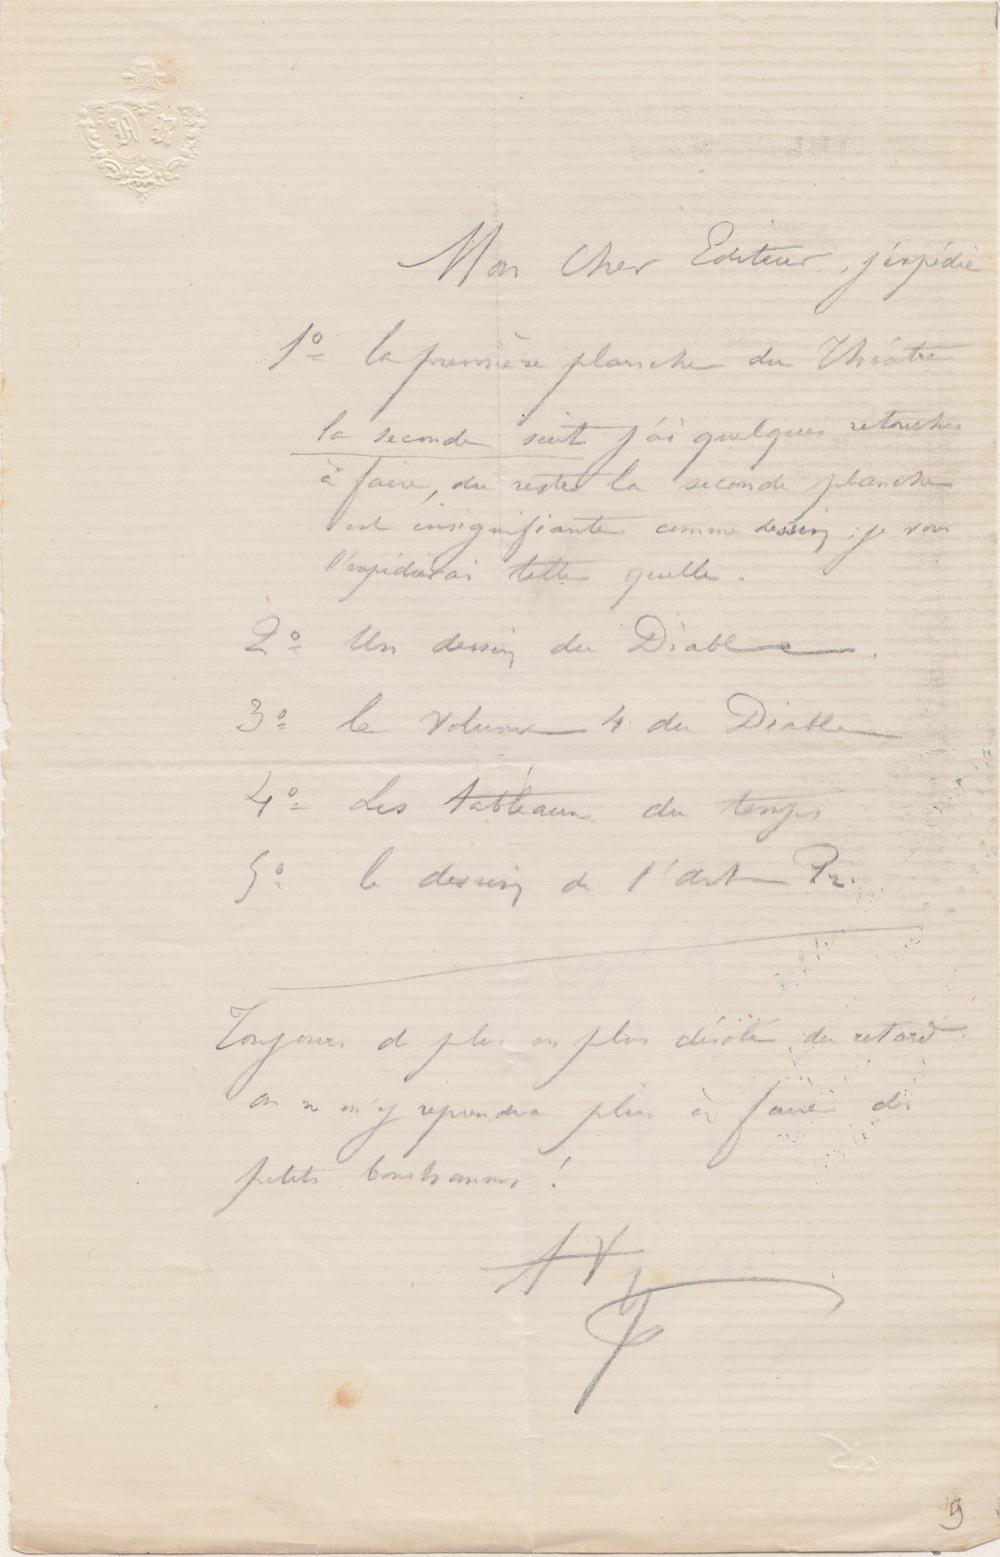 Mon Cher Editeur, j'expédie
1º la première planche du Théâtre
la seconde suit j'ai quelques retouches
à faire, du reste la seconde planche
est insignifiante comme dessin, je vous
l'expédierai telle quelle.
2º Un dessin du Diable.
3º le volume 4 du Diable
4º Les tableaux du temps
5º le dessin de l'art Pr.
Toujours de plus en plus désolé du retard
on ne m'y reprendra plus à faire des
petits bonshommes !
AV
9